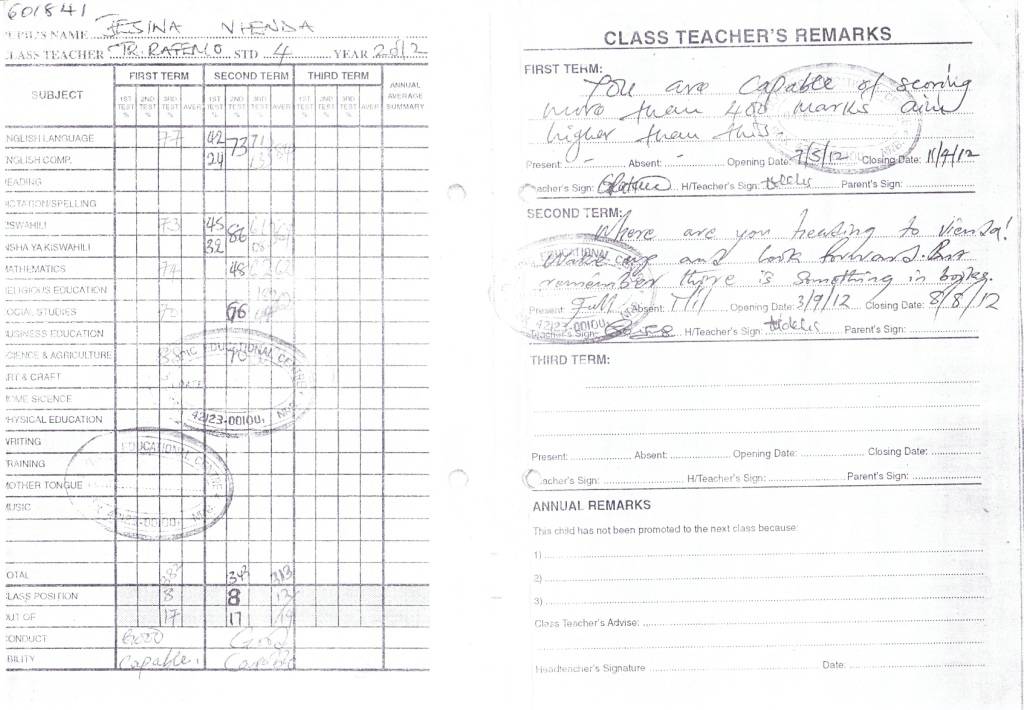 601841
PUPIL'S NAME JESINA
CLASS TEACHER TR. STD 4 YEAR 2012
SUBJECT FIRST TERM SECOND TERM THIRD TERM ANNUAL AVERAGE SUMMARY
1ST TEST % 2ND TEST % 3RD TEST % AVER 1ST TEST % 2ND TEST % 3RD TEST % AVER 1ST TEST % 2ND TEST % 3RD TEST % AVER
NGLISH LANGUAGE 77 42 73 71
NGLISH COMP. 24
EADING
ICTATION/SPELLING
ISWAHILI 73 45 86
NSHA YA KISWAHILI 32
MATHEMATICS 74 48
ELIGIOUS EDUCATION
OCIAL STUDIES 70 66
USINESS EDUCATION
CIENCE & AGRICULTURE 70
RT & CRAFT
OME SICENCE
HYSICAL EDUCATION
WRITING
RAINING
MOTHER TONGUE
MUSIC
OTAL 382 343 313
LASS POSITION 8 8 12
UT OF 17 17
ONDUCT Good Good
BILITY Capable. Capable
EDUCATIONAL CENTRE
42123-00100, NRB
EDUCATIONAL CENTRE
42123-00100, NRB
CLASS TEACHER'S REMARKS
FIRST TERM:
You are capable of scoring
more than 400 marks aim
higher than this.
Present: - Absent: - Opening Date: 7/5/12 Closing Date: 11/4/12
eacher's Sign: H/Teacher's Sign: Parent's Sign:
SECOND TERM:
Where are you heading to Vienda!
Wake up and look forward. But
remember there is something in books.
Present: Full Absent: Nil Opening Date: 3/9/12 Closing Date: 8/8/12
Teacher's Sign: H/Teacher's Sign: Parent's Sign:
EDUCATIONAL CENTRE
42123-00100
THIRD TERM:
Present: Absent: Opening Date: Closing Date:
eacher's Sign: H/Teacher's Sign: Parent's Sign:
ANNUAL REMARKS
This child has not been promoted to the next class because:
1)
2)
3)
Class Teacher's Advise:
Headteacher's Signature Date: